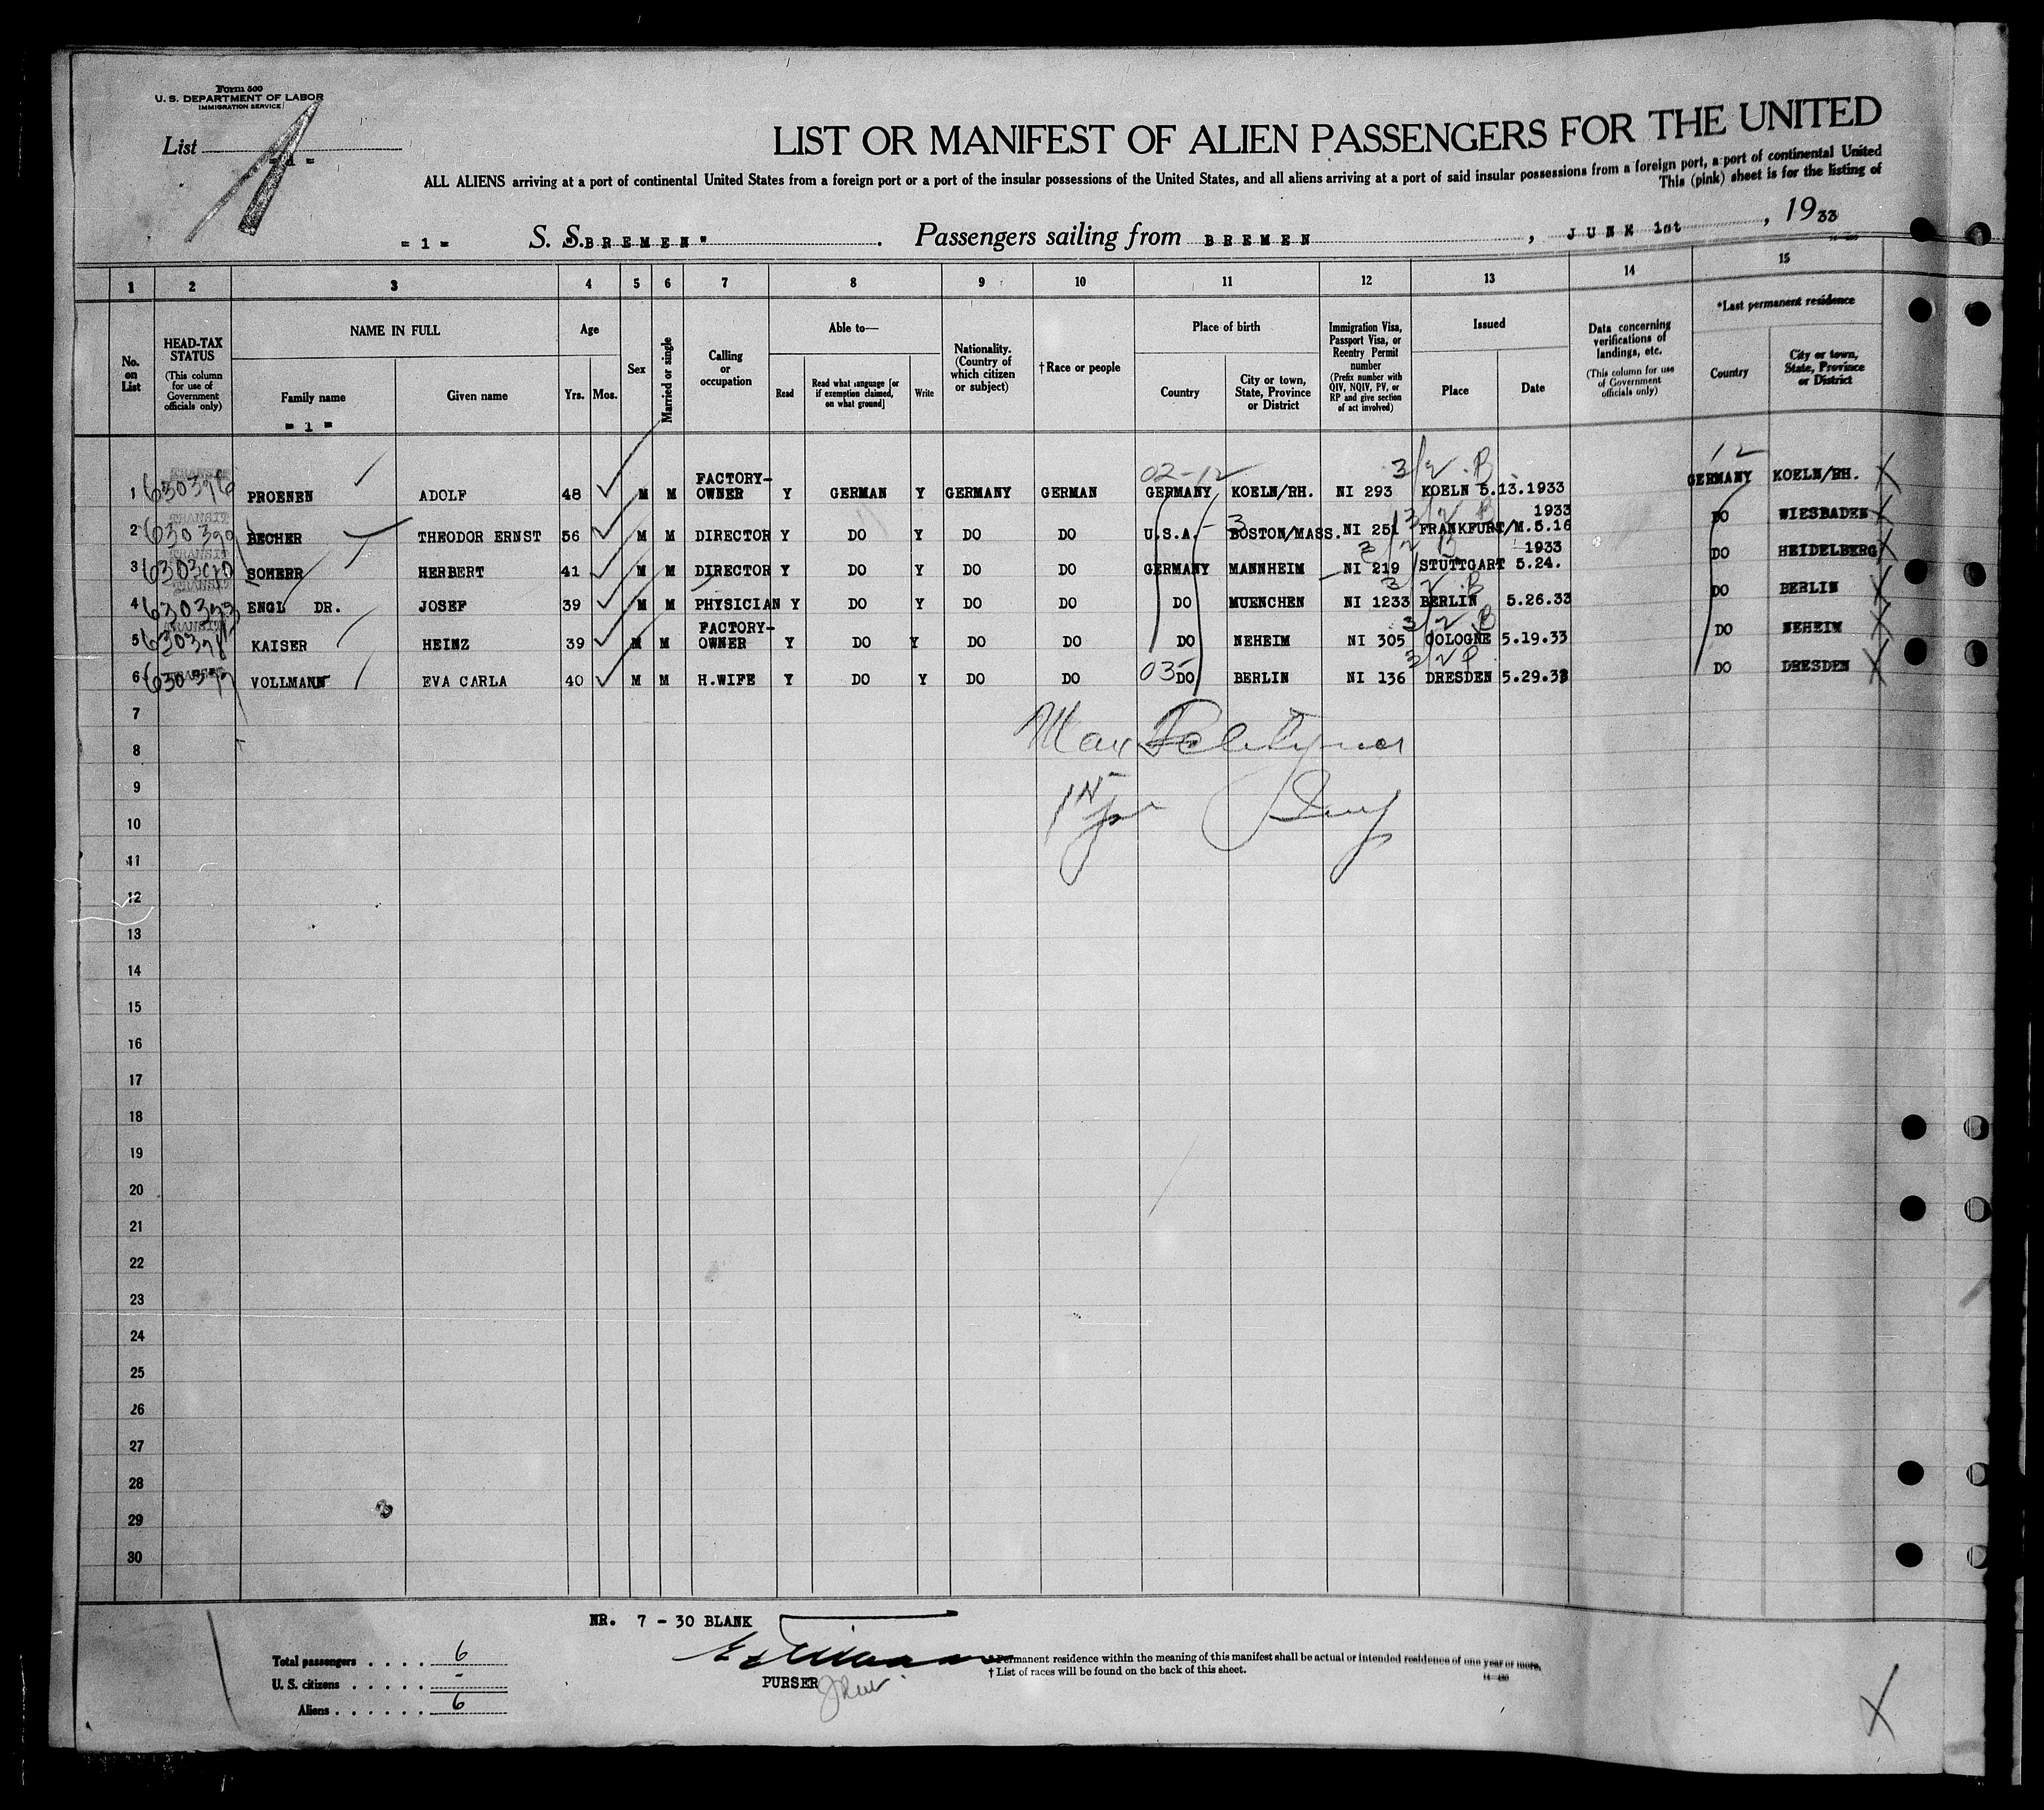 Form 500
U. S. DEPARTMENT OF LABOR
IMMIGRATION SERVICE
List
- 1 -
LIST OR MANIFEST OF ALIEN PASSENGERS FOR THE UNITED
ALL ALIENS arriving at a port of continental United States from a foreign port or a port of the insular possessions of the United States, and all aliens arriving at a port of said insular possessions from a foreign port, a port of continental United
This (pink) sheet is for the listing of
= 1 = S. S. "BREMEN" . Passengers sailing from BREMEN , JUNE 1st , 1933
1 2 3 4 5 6 7 8 9 10 11 12 13 14 15
No. on List
HEAD-TAX STATUS (This column for use of Government officials only)
NAME IN FULL Family name Given name
= 1 =
Age Yrs. Mos.
Sex
Married or single
Calling or occupation
Able to— Read Read what language [or if exemption claimed, on what ground] Write
Nationality. (Country of which citizen or subject)
†Race or people
Place of birth Country City or town, State, Province or District
Immigration Visa, Passport Visa, or Reentry Permit number (Prefix number with QIV, NQIV, PV, or RP and give section of act involved)
Issued Place Date
Data concerning verifications of landings, etc. (This column for use of Government officials only)
*Last permanent residence Country City or town, State, Province or District
02-12
12
1 TRANSIT 630376 PROENEN ADOLF 48 M M FACTORY-OWNER Y GERMAN Y GERMANY GERMAN GERMANY KOELN/RH. NI 293 3/2 B KOELN 5.13.1933 GERMANY KOELN/RH. X
2 TRANSIT BECHER THEODOR ERNST 56 M M DIRECTOR Y DO Y DO DO U.S.A. - 3 BOSTON/MASS. NI 251 3/2 B FRANKFURT/M. 5.16 1933 DO WIESBADEN X
3 TRANSIT SOHERR HERBERT 41 M M DIRECTOR Y DO Y DO DO GERMANY MANNHEIM NI 219 3/2 B STUTTGART 5.24. 1933 DO HEIDELBERG X
4 TRANSIT ENGL DR. JOSEF 39 M M PHYSICIAN Y DO Y DO DO DO MUENCHEN NI 1233 3/2 B BERLIN 5.26.33 DO BERLIN X
5 TRANSIT KAISER HEINZ 39 M M FACTORY-OWNER Y DO Y DO DO DO NEHEIM NI 305 3/2 B COLOGNE 5.19.33 DO NEHEIM X
6 TRANSIT VOLLMANN EVA CARLA 40 M M H.WIFE Y DO Y DO DO 03 DO BERLIN NI 136 3/2 DRESDEN 5.29.33 DO DRESDEN X
7
Max
8
9
10
11
12
13
14
15
16
17
18
19
20
21
22
23
24
25
26
27
28
29
30
NR. 7 - 30 BLANK
Total passengers . . . . 6
U. S. citizens . . . . . -
Aliens . . . . . . 6
PURSER
*Permanent residence within the meaning of this manifest shall be actual or intended residence of one year or more.
† List of races will be found on the back of this sheet.
14—480
X